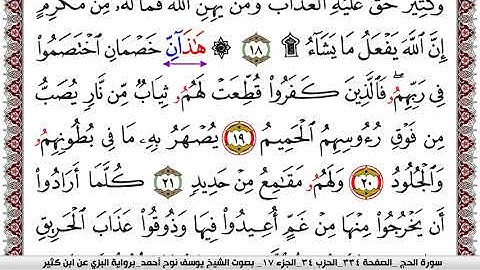 وَكَثِيرٌ حَقَّ عَلَيْهِ الْعَذَابُ وَمَن يُهِنِ اللَّهُ فَمَا لَهُۥ مِن مُّكْرِمٍ
إِنَّ اللَّهَ يَفْعَلُ مَا يَشَآءُ ۩ ١٨ ۞ هَٰذَآنِّ خَصْمَانِ اخْتَصَمُوا
فِى رَبِّهِمُۥ فَالَّذِينَ كَفَرُوا قُطِّعَتْ لَهُمُۥ ثِيَابٌ مِّن نَّارٍ يُصَبُّ
مِن فَوْقِ رُءُوسِهِمُ الْحَمِيمُ ١٩ يُصْهَرُ بِهِۦ مَا فِى بُطُونِهِمُۥ
وَالْجُلُودُ ٢٠ وَلَهُمُۥ مَقَامِعُ مِنْ حَدِيدٍ ٢١ كُلَّمَا أَرَادُوا
أَن يَخْرُجُوا مِنْهَا مِنْ غَمٍّ أُعِيدُوا فِيهَا وَذُوقُوا عَذَابَ الْحَرِيقِ
سورة الحج_ الصفحة ٣٣٤_ الحزب ٣٤_ الجزء ١٧_ بصوت الشيخ يوسف نوح أحمد_ برواية البزي عن ابن كثير